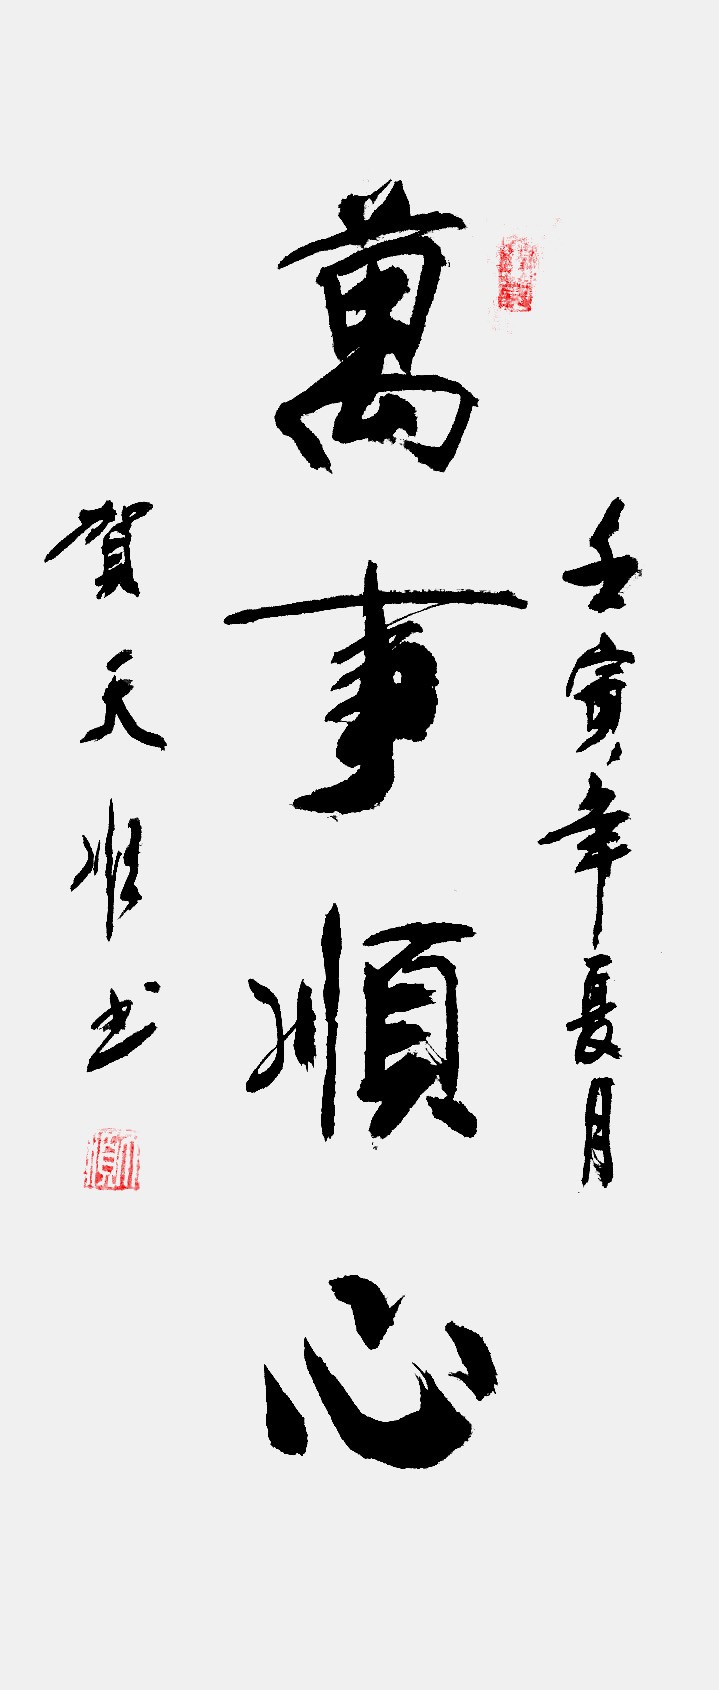 壬寅年夏月
萬事順心
賀天順书